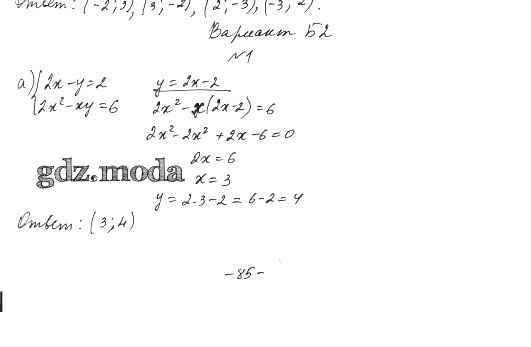 Ответ: (-2; 3), (3; -2), (2; -3), (-3; 2).
Вариант Б2
№1
а) { 2x - y = 2
2x² - xy = 6
y = 2x - 2
2x² - x(2x - 2) = 6
2x² - 2x² + 2x - 6 = 0
2x = 6
gdz.moda
x = 3
y = 2·3 - 2 = 6 - 2 = 4
Ответ: (3; 4)
- 85 -